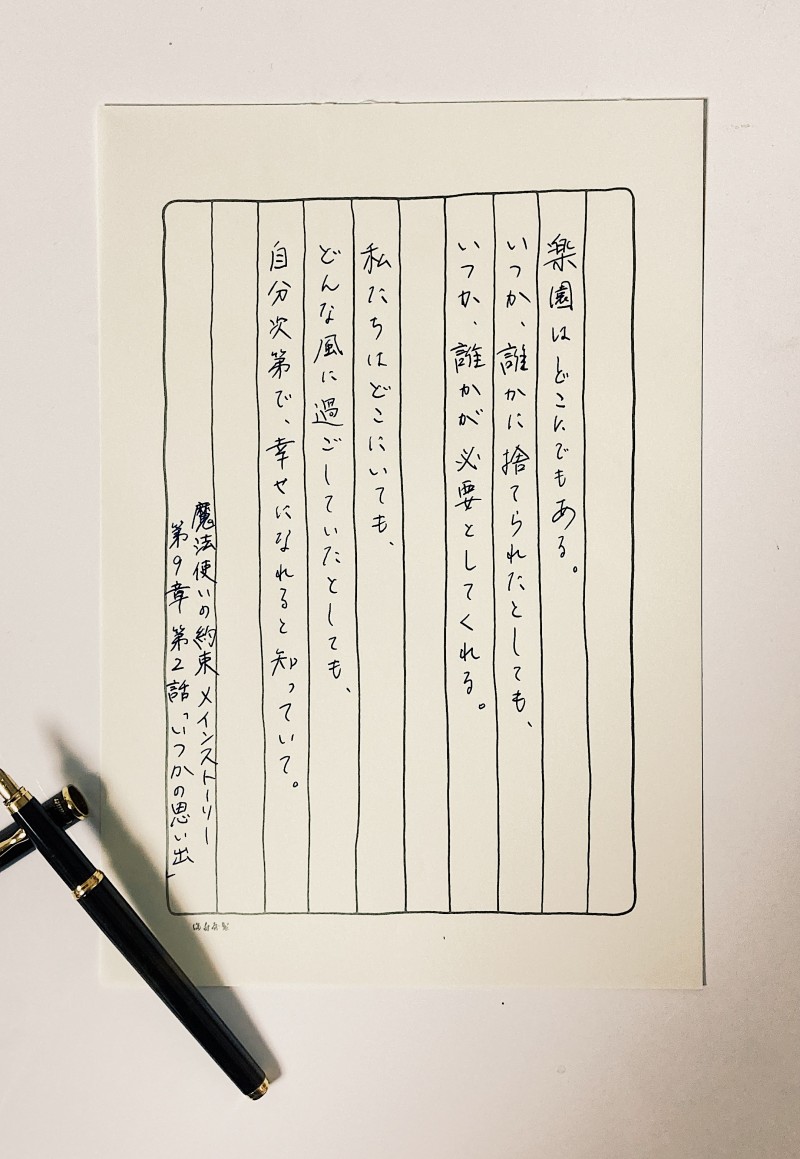 楽園はどこにでもある。
いつか、誰かに捨てられたとしても、
いつか、誰かが必要としてくれる。
私たちはどこにいても、
どんな風に過ごしていたとしても、
自分次第で、幸せになれると知っていて。
魔法使いの約束 メインストーリー
第9章 第2話「いつかの思い出」